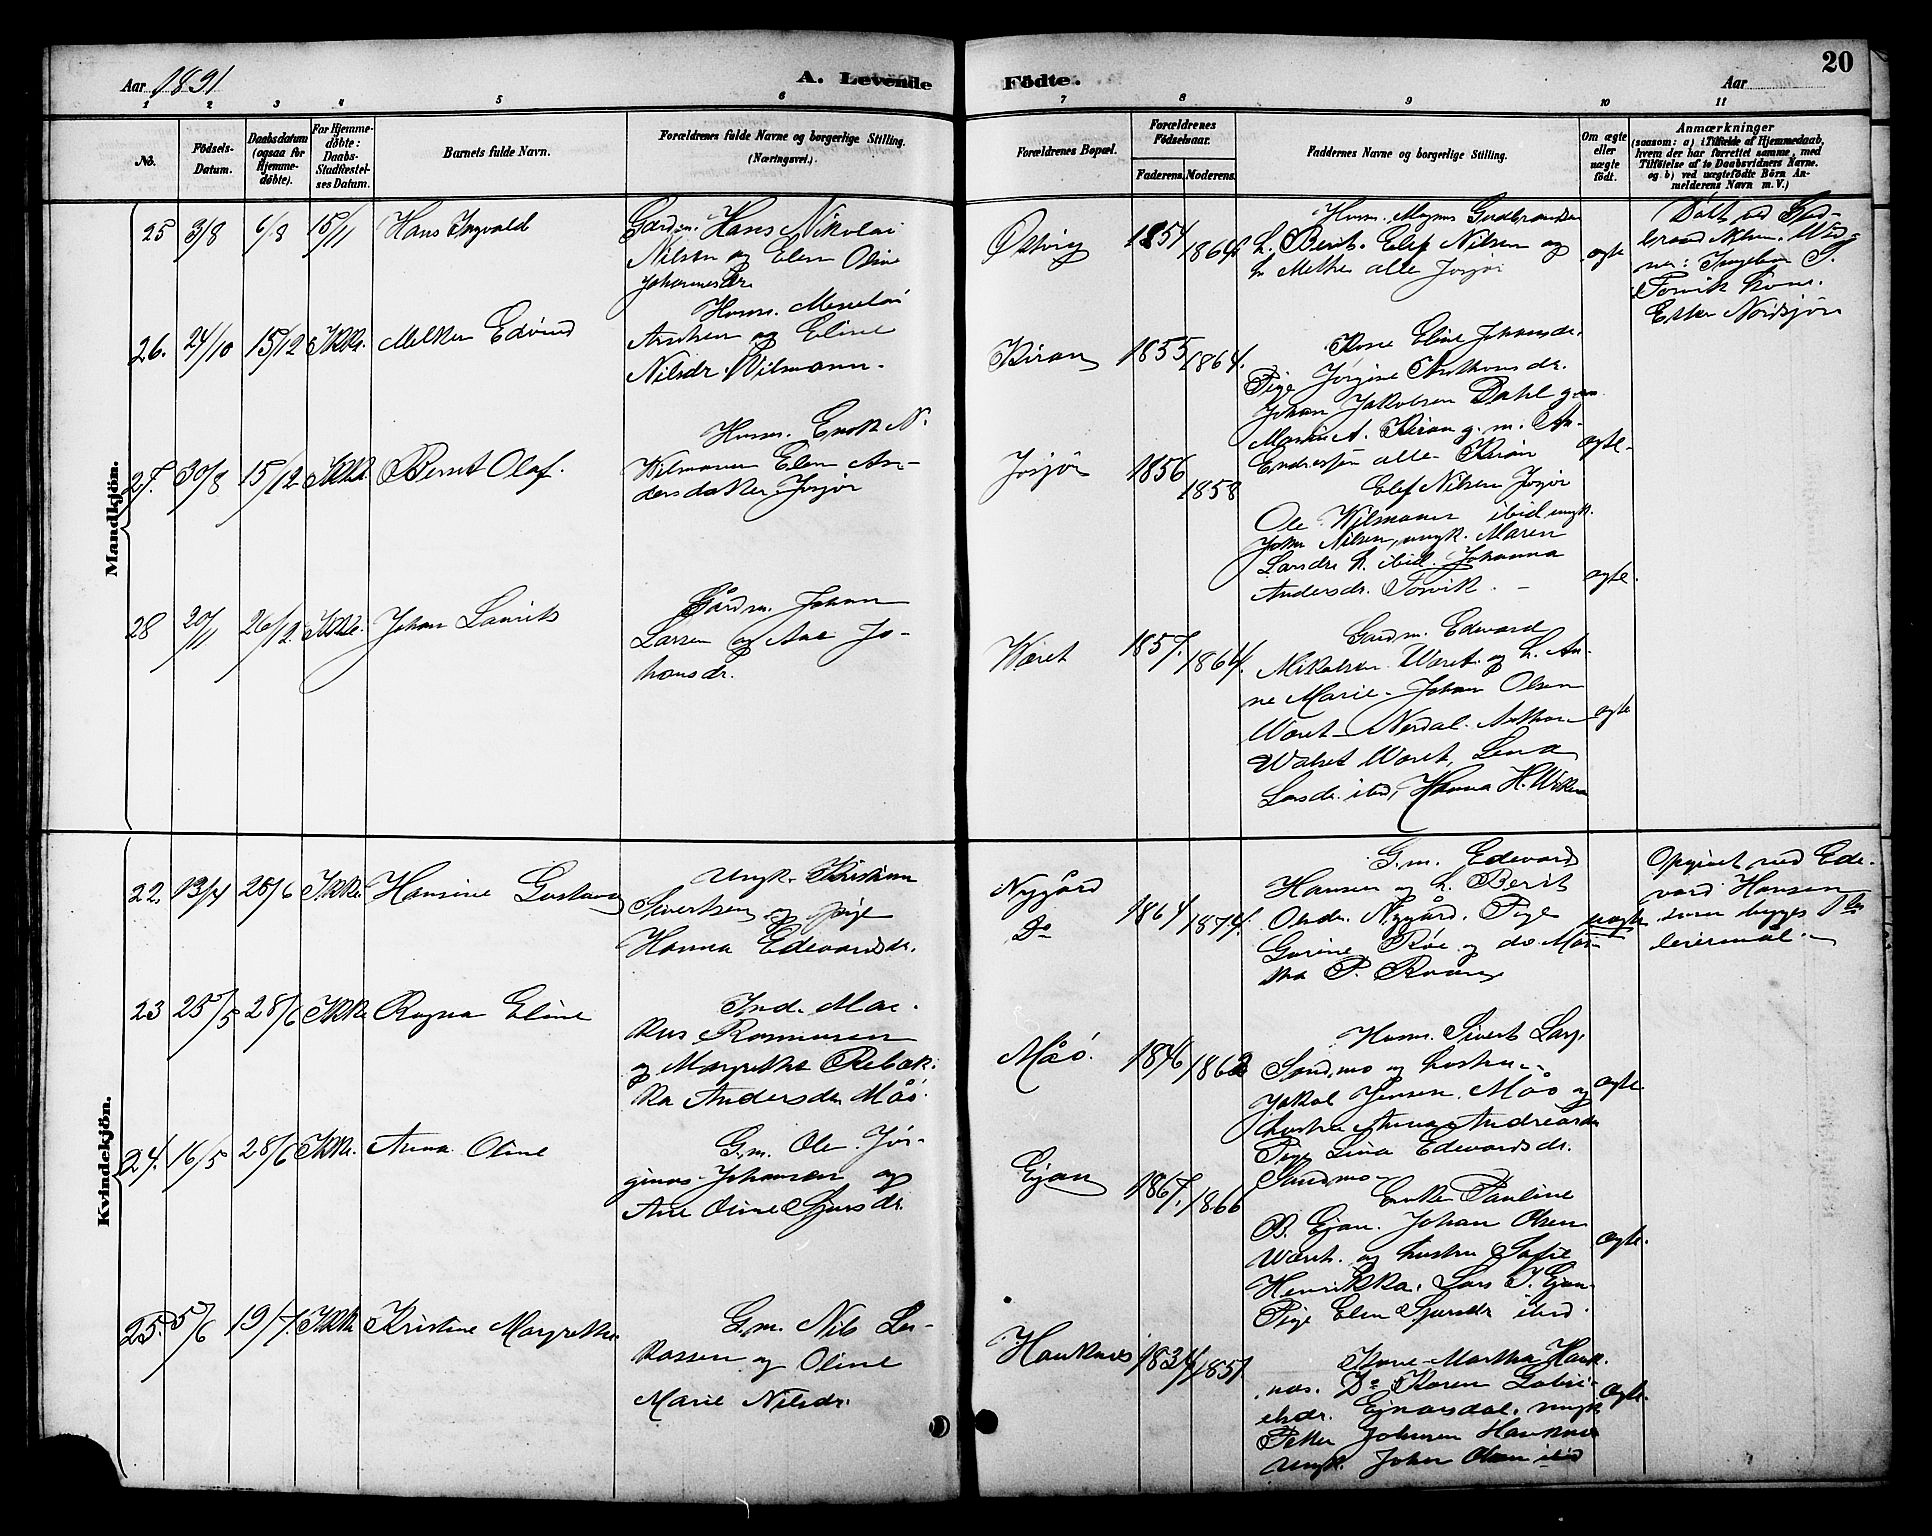 Aar 1891
A. Levende
Födte.
Aar
20
1 2 3 4 5 6 7 8 9 10 11
No.
Födsels-
Datum.
Daabsdatum
(ogsaa for
Hjemme-
döbte).
For Hjemme-
döbte:
Daabs-
Stadfæstel-
ses Datum.
Barnets fulde Navn.
Forældrenes fulde Navne og borgerlige Stilling.
(Næringsvei.)
Forældrenes Bopæl.
Forældrenes
Födselsaar.
Faderens. Moderens.
Faddernes Navne og borgerlige Stilling.
Om ægte
eller
uægte
födt.
Anmærkninger
(saasom: a) i Tilfælde af Hjemmedaab,
hvem der har forrettet samme, med
Tilföielse af to Daabsvidners Navne.
og b) ved uægtefödte Börn An-
melderens Navn m. V.)
Mandkjön.
25 3/8 6/8 15/11 Hans Ingvald
Gardm. Hans Nikolai
Nilsen og Elen Oline
Johannesdr.
Østvig 1854 1864
Husm. Magnus Gudbrandsen
h. Berit. Elef Nilsen og
h. Methe alle Josjör
ægte
Døbt ved Gud-
brand Nilsen. Vid-
ner: Ingebor
Torvik kone.
Ester Nordsjön
26. 24/10 15/12 Ikke. Melker Edvind
Husm.
og Eline
Nilsdr. Wilmann.
Kiran 1855 1864.
Kone Eline Johansdr.
Pige Jørgine Anthonsdr.
Johan Jakobsen Dahl gm.
A. Kiran g. m. An-
alle Kiran
ægte
27. 30/8 15/12 Ikke Bernt Olaf.
Husm. Enok N.
Wilmann Elen An-
dersdatter Josjör
Josjör 1856 1858
Elef Nilsen Josjör
Ole Wilmann ibid ungk.
Nilsen, ungk. Maren
Larsdr. h. ibid. Johanna
Andersdr. Torvik.
ægte.
28 20/11 26/12 Ikke. Johan Laurits
Gårdm. Johan
Larsen og Ane Jo-
hansdr.
Været 1857. 1864.
Gardm. Edevard
Mikalsen Været. og h. An-
ne Marie. Johan Olsen
Været Nerdal. Anthon
Været, Lena
Larsdr. ibid, Hanna H.
ægte
Kvindekjön.
22. 13/4 28/6 Ikke. Hansine Gustava
Ungk. Kristian
Sivertsen og pige
Hanna Edevardsdr.
Nygård
Do
1864 1874.
G.m. Edevard
Hansen og h. Berit
Olsdr. Nygård. Pige
Gurine Røe og do
P.
uægte
Opgivet ved Ede-
vard Hansen
begges 1ste
leiermål.
23 25/5 28/6 Ikke. Ragna Eline
Ind. Mar-
kus Rasmussen
og Margrethe Rebek-
ka Andersdr. Måsö.
Måsö. 1846 1862
Husm. Sivert Lars.
Sandmo og hustru
Jakob Jensen Måsö og
hustru Anna Andreasdr.
Pige Lina Edevardsdr.
Sandmo
ægte
24. 16/5 28/6 Ikke. Anna Oline
G.m. Ole Jør-
ginus Johansen og
Ane Oline Sjursdr.
Ejan 1867. 1866
Enke Pauline
B. Ejan. Johan Olsen
Været. og hustru Sofie
Henrikka. Lars J. Ejan
Pige Elen Sjursdr ibid.
ægte.
25. 5/6 19/7. Ikke Kristine Margrethe
G.m. Nils
og Oline
Marie Nilsdr.
Hauknes 1834 1851
Kone Martha Hauk-
nes. Do Karen Gabri-
elsdr. Ejnarsdal. ungk
Peter Johnsen Hauknes
ungk. Johan Olsen ibid
ægte.